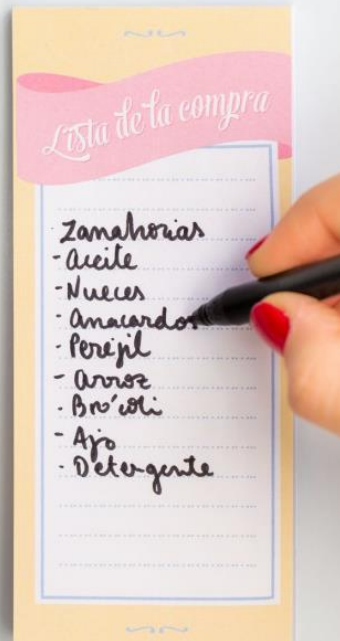 Lista de la compra
- Zanahorias
- aceite
- Nueces
- anacardos
- Perejil
- arroz
- Bro'coli
- Ajo
- Detergente